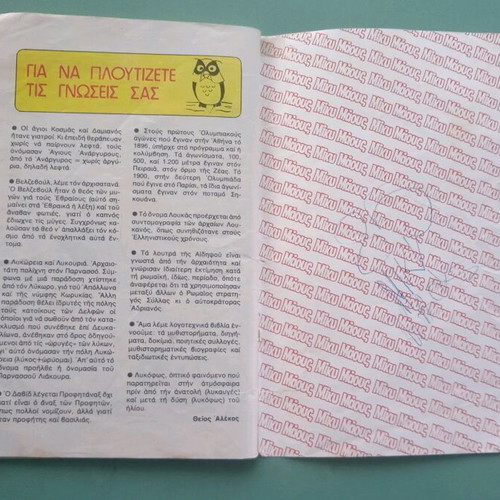 ΓΙΑ ΝΑ ΠΛΟΥΤΙΖΕΤΕ
ΤΙΣ ΓΝΩΣΕΙΣ ΣΑΣ
● Οἱ ἅγιοι Κοσμᾶς καί Δαμιανός
ἦταν γιατροί. Κι ἐπειδή θεράπευαν
χωρίς νά παίρνουν λεφτά, τούς
ὀνόμασαν Ἅγιους Ἀνάργυρους,
ἀπό τό Ἀνάργυρος = χωρίς ἀργύ-
ρια, δηλαδή λεφτά.
● Βελζεβούλ, λέμε τόν ἀρχισατανά.
Ὁ Βελζεβούλ ἦταν ὁ θεός τῶν μυ-
γῶν γιά τούς Ἑβραίους (αὐτό ση-
μαίνει στά Ἑβραικά ἡ λέξη) καί τοῦ
ἄναβαν φωτιές, γιατί ὁ καπνός
ἔδιωχνε τίς μύγες. Συγχρόνως κα-
λοῦσαν τό θεό ν' ἀπαλλάξει τόν κό-
σμο ἀπό τά ἐνοχλητικά αὐτά ἔν-
τομα.
Λυκώρεια καί Λυκουριά. Ἀρχαιο-
τάτη πολίχνη στόν Παρνασσό. Σύμ-
φωνα μέ μιά παράδοση χτίστηκε
ἀπό τόν Λύκωρο, γιό τοῦ Ἀπόλλωνα
καί τῆς νύμφης Κωρυκίας. Ἄλλη
παράδοση θέλει ἱδρυτές τῆς πόλης
τούς κατοίκους τῶν Δελφῶν οἱ
ὁποῖοι γιά νά σωθοῦν ἀπό τόν κατα-
κλυσμό πού συνέθηκε ἐπί Δευκα-
λίωνα, ἀνέβηκαν στό ὄρος ὁδηγού-
μενοι ἀπό τίς «ὠρυγές» τῶν λύκων.
Γι' αὐτό ὀνόμασαν τήν πόλη Λυκώ-
ρεια (λύκος+ὠρύομαι). Ἀπ' αὐτό τό
ὄνομα προῆλθε ἡ ὀνομασία τοῦ
Παρνασσοῦ Λιάκουρα.
Ὁ Δαβίδ λέγεται Προφητάναξ ὄχι
γιατί εἶναι ὁ ἄναξ τῶν Προφητῶν,
ὅπως πολλοί νομίζουν, ἀλλά γιατί
ἦταν προφήτης καί βασιλιάς.
● Στούς πρώτους Ὀλυμπιακούς
ἀγῶνες πού ἔγιναν στήν Ἀθήνα τό
1896, ὑπῆρχε στό πρόγραμμα καί ἡ
κολύμβηση. Τά ἀγωνίσματα, 100,
500, καί 1.200 μέτρα ἔγιναν στόν
Πειραιά, στόν ὅρμο τῆς Ζέας. Τό
1900, στήν δεύτερη Ὀλυμπιάδα
πού ἔγινε στό Παρίσι, τά ἴδια ἀγωνί-
σματα ἔγιναν στόν ποταμό Ση-
κουάνα.
● Τό ὄνομα Λουκᾶς προέρχεται ἀπό
συντομογραφία τῶν ἀρχαίων Λου-
κανός, ὅπως συνηθιζόταν στούς
Ἑλληνιστικούς χρόνους.
● Τά λουτρά τῆς Αἰδηψοῦ εἶναι γνω-
στά ἀπό τήν ἀρχαιότητα καί
γνώρισαν ἰδιαίτερη ἐκτίμηση κατά
τή ρωμαϊκή, ἰδίως, περίοδο, ὁπότε
ἀναφέρεται ὅτι τά χρησιμοποίησαν
μεταξύ ἄλλων ὁ Ρωμαῖος στρατη-
γός Σύλλας κι ὁ αὐτοκράτορας
Ἀδριανός.
● Ἅμα λέμε λογοτεχνικά βιβλία ἐν-
νοοῦμε: τά μυθιστορήματα, διηγή-
ματα, δοκίμια, ποιητικές συλλογές,
μυθιστορηματικές βιογραφίες καί
ταξιδιωτικές ἐντυπώσεις.
● Λυκόφως, ὀπτικό φαινόμενο πού
παρατηρεῖται στήν ἀτμόσφαιρα
πρίν ἀπό τήν ἀνατολή (λυκαυγές)
καί μετά τή δύση (λυκόφως) τοῦ
ἥλιου.
Θεῖος Ἀλέκος
Μίκυ Μάους